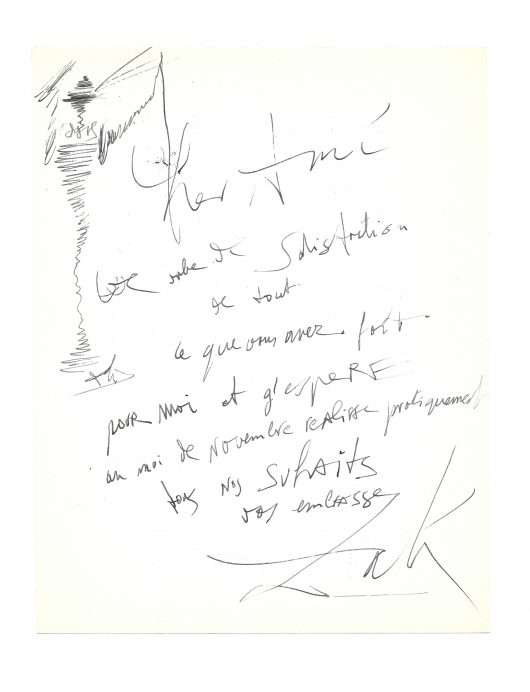 Cher Amé
robe de Satisfaction
de tout
ce que vous avez fait
pour moi et g'espeRE
au moi de Novembre reALisse pratiquement
tous Nos SuhAits
vos embrASSe
Zak